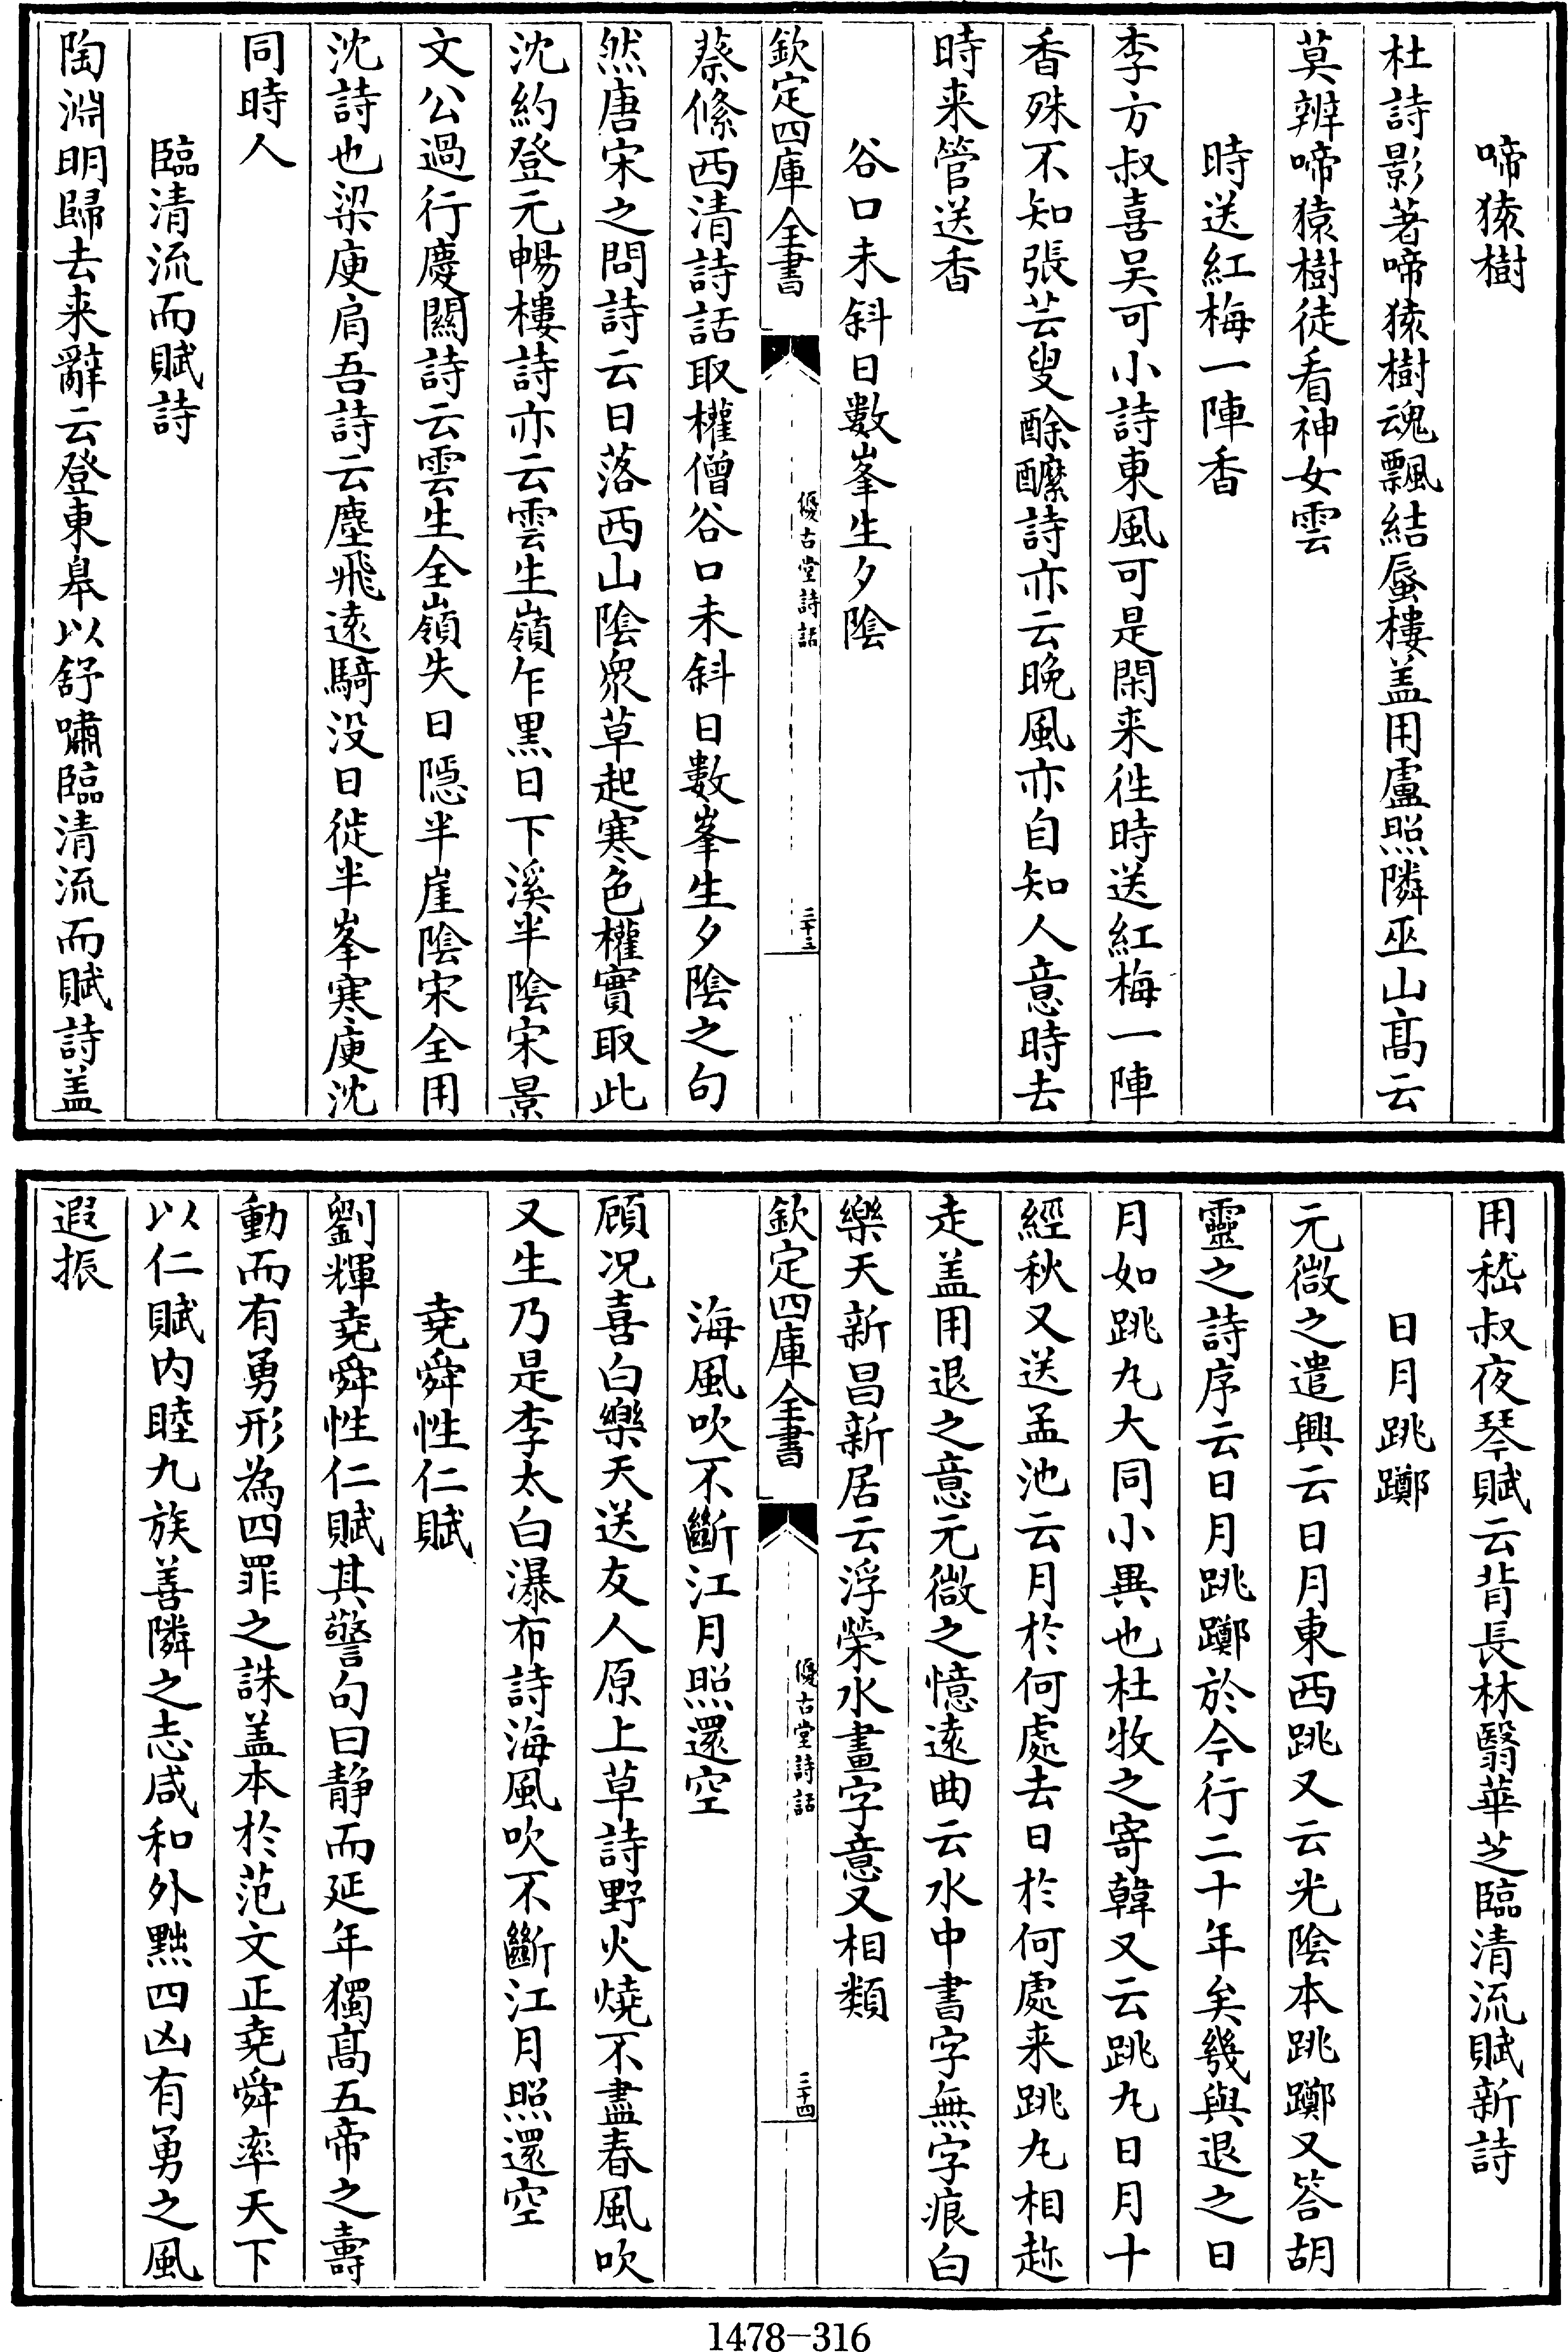 啼猿樹
杜詩影著啼猿樹魂飄結蜃樓盖用盧照隣巫山髙云
莫辨啼猿樹徒看神女雲
時送紅梅一陣香
李方叔喜吴可小詩東風可是閑来徃時送紅梅一陣
香殊不知張芸叟酴醿詩亦云晚風亦自知人意時去
時来管送香
谷口未斜日數峯生夕隂
欽定四庫全書
優古堂詩話
三十三
蔡絛西清詩話取權僧谷口未斜日數峯生夕隂之句
然唐宋之問詩云日落西山隂衆草起寒色權實取此
沈約登元暢樓詩亦云雲生嶺乍黒日下溪半隂宋景
文公過行慶闗詩云雲生全嶺失日隠半崖隂宋全用
沈詩也梁庾肩吾詩云塵飛逺騎没日徙半峯寒庾沈
同時人
臨清流而賦詩
陶淵明歸去来辭云登東臯以舒嘯臨清流而賦詩盖
用嵇叔夜琴賦云背長林翳華芝臨清流賦新詩
日月跳躑
元微之遣興云日月東西跳又云光隂本跳躑又答胡
靈之詩序云日月跳躑於今行二十年矣幾與退之日
月如跳丸大同小異也杜牧之寄韓又云跳丸日月十
經秋又送孟池云月於何處去日於何處来跳丸相趂
走盖用退之意元微之憶逺曲云水中書字無字痕白
樂天新昌新居云浮榮水畫字意又相類
欽定四庫全書
優古堂詩話
三十四
海風吹不斷江月照還空
顧况喜白樂天送友人原上草詩野火燒不盡春風吹
又生乃是李太白瀑布詩海風吹不斷江月照還空
堯舜性仁賦
劉輝堯舜性仁賦其警句曰静而延年獨髙五帝之壽
動而有勇形為四罪之誅盖本於范文正堯舜率天下
以仁賦内睦九族善隣之志咸和外黜四凶有勇之風
遐振
1478-316